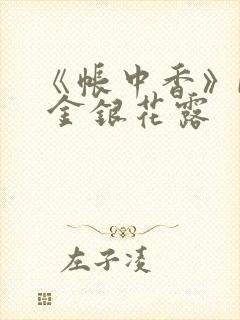 《帐中香》
金银花露
左子凌